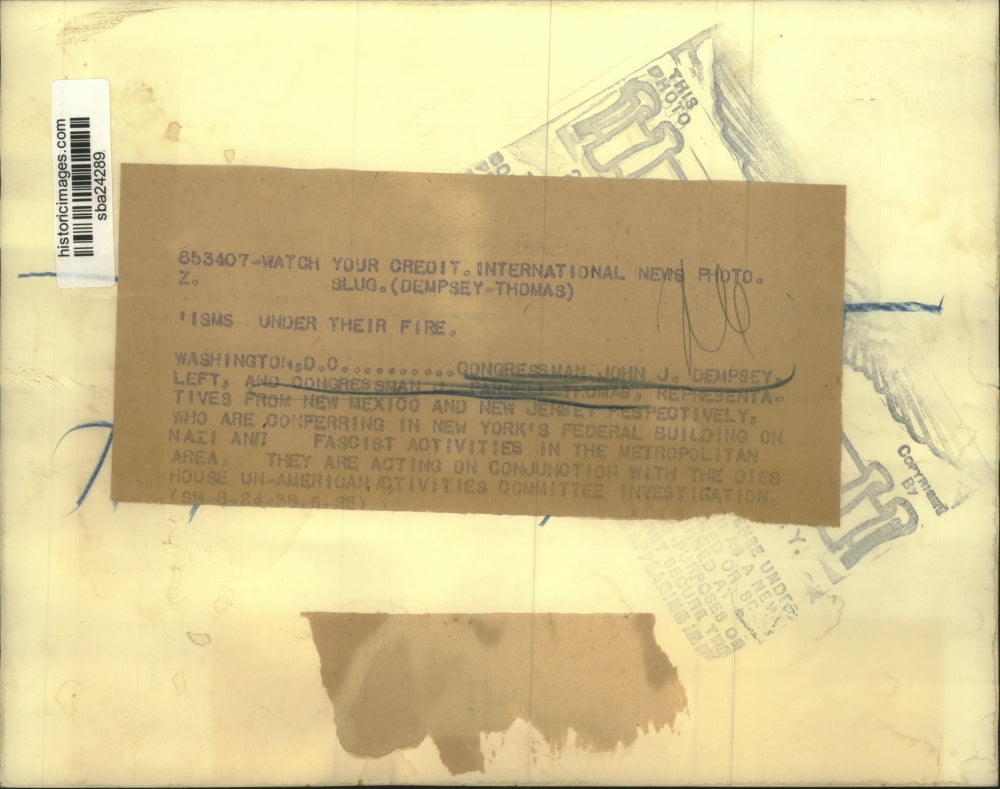 historicimages.com
sba24289
THIS
PHOTO
853407-WATCH YOUR CREDIT. INTERNATIONAL NEWS PHOTO.
Z. SLUG.(DEMPSEY-THOMAS)
'ISMS UNDER THEIR FIRE.
WASHINGTON,D.C...........CONGRESSMAN JOHN J. DEMPSEY,
LEFT, AND CONGRESSMAN J. THOMAS, REPRESENTA-
TIVES FROM NEW MEXICO AND NEW JERSEY RESPECTIVELY,
WHO ARE CONFERRING IN NEW YORK'S FEDERAL BUILDING ON
NAZI AND FASCIST ACTIVITIES IN THE METROPOLITAN
AREA. THEY ARE ACTING ON CONJUNCTION WITH THE DIES
HOUSE UN-AMERICAN ACTIVITIES COMMITTEE INVESTIGATION.
(SM-8-24-38-6-25)
COPYRIGHT
By
Y.
UNDER
AS A NEWS
OR
PURPOSES OR
SECURE